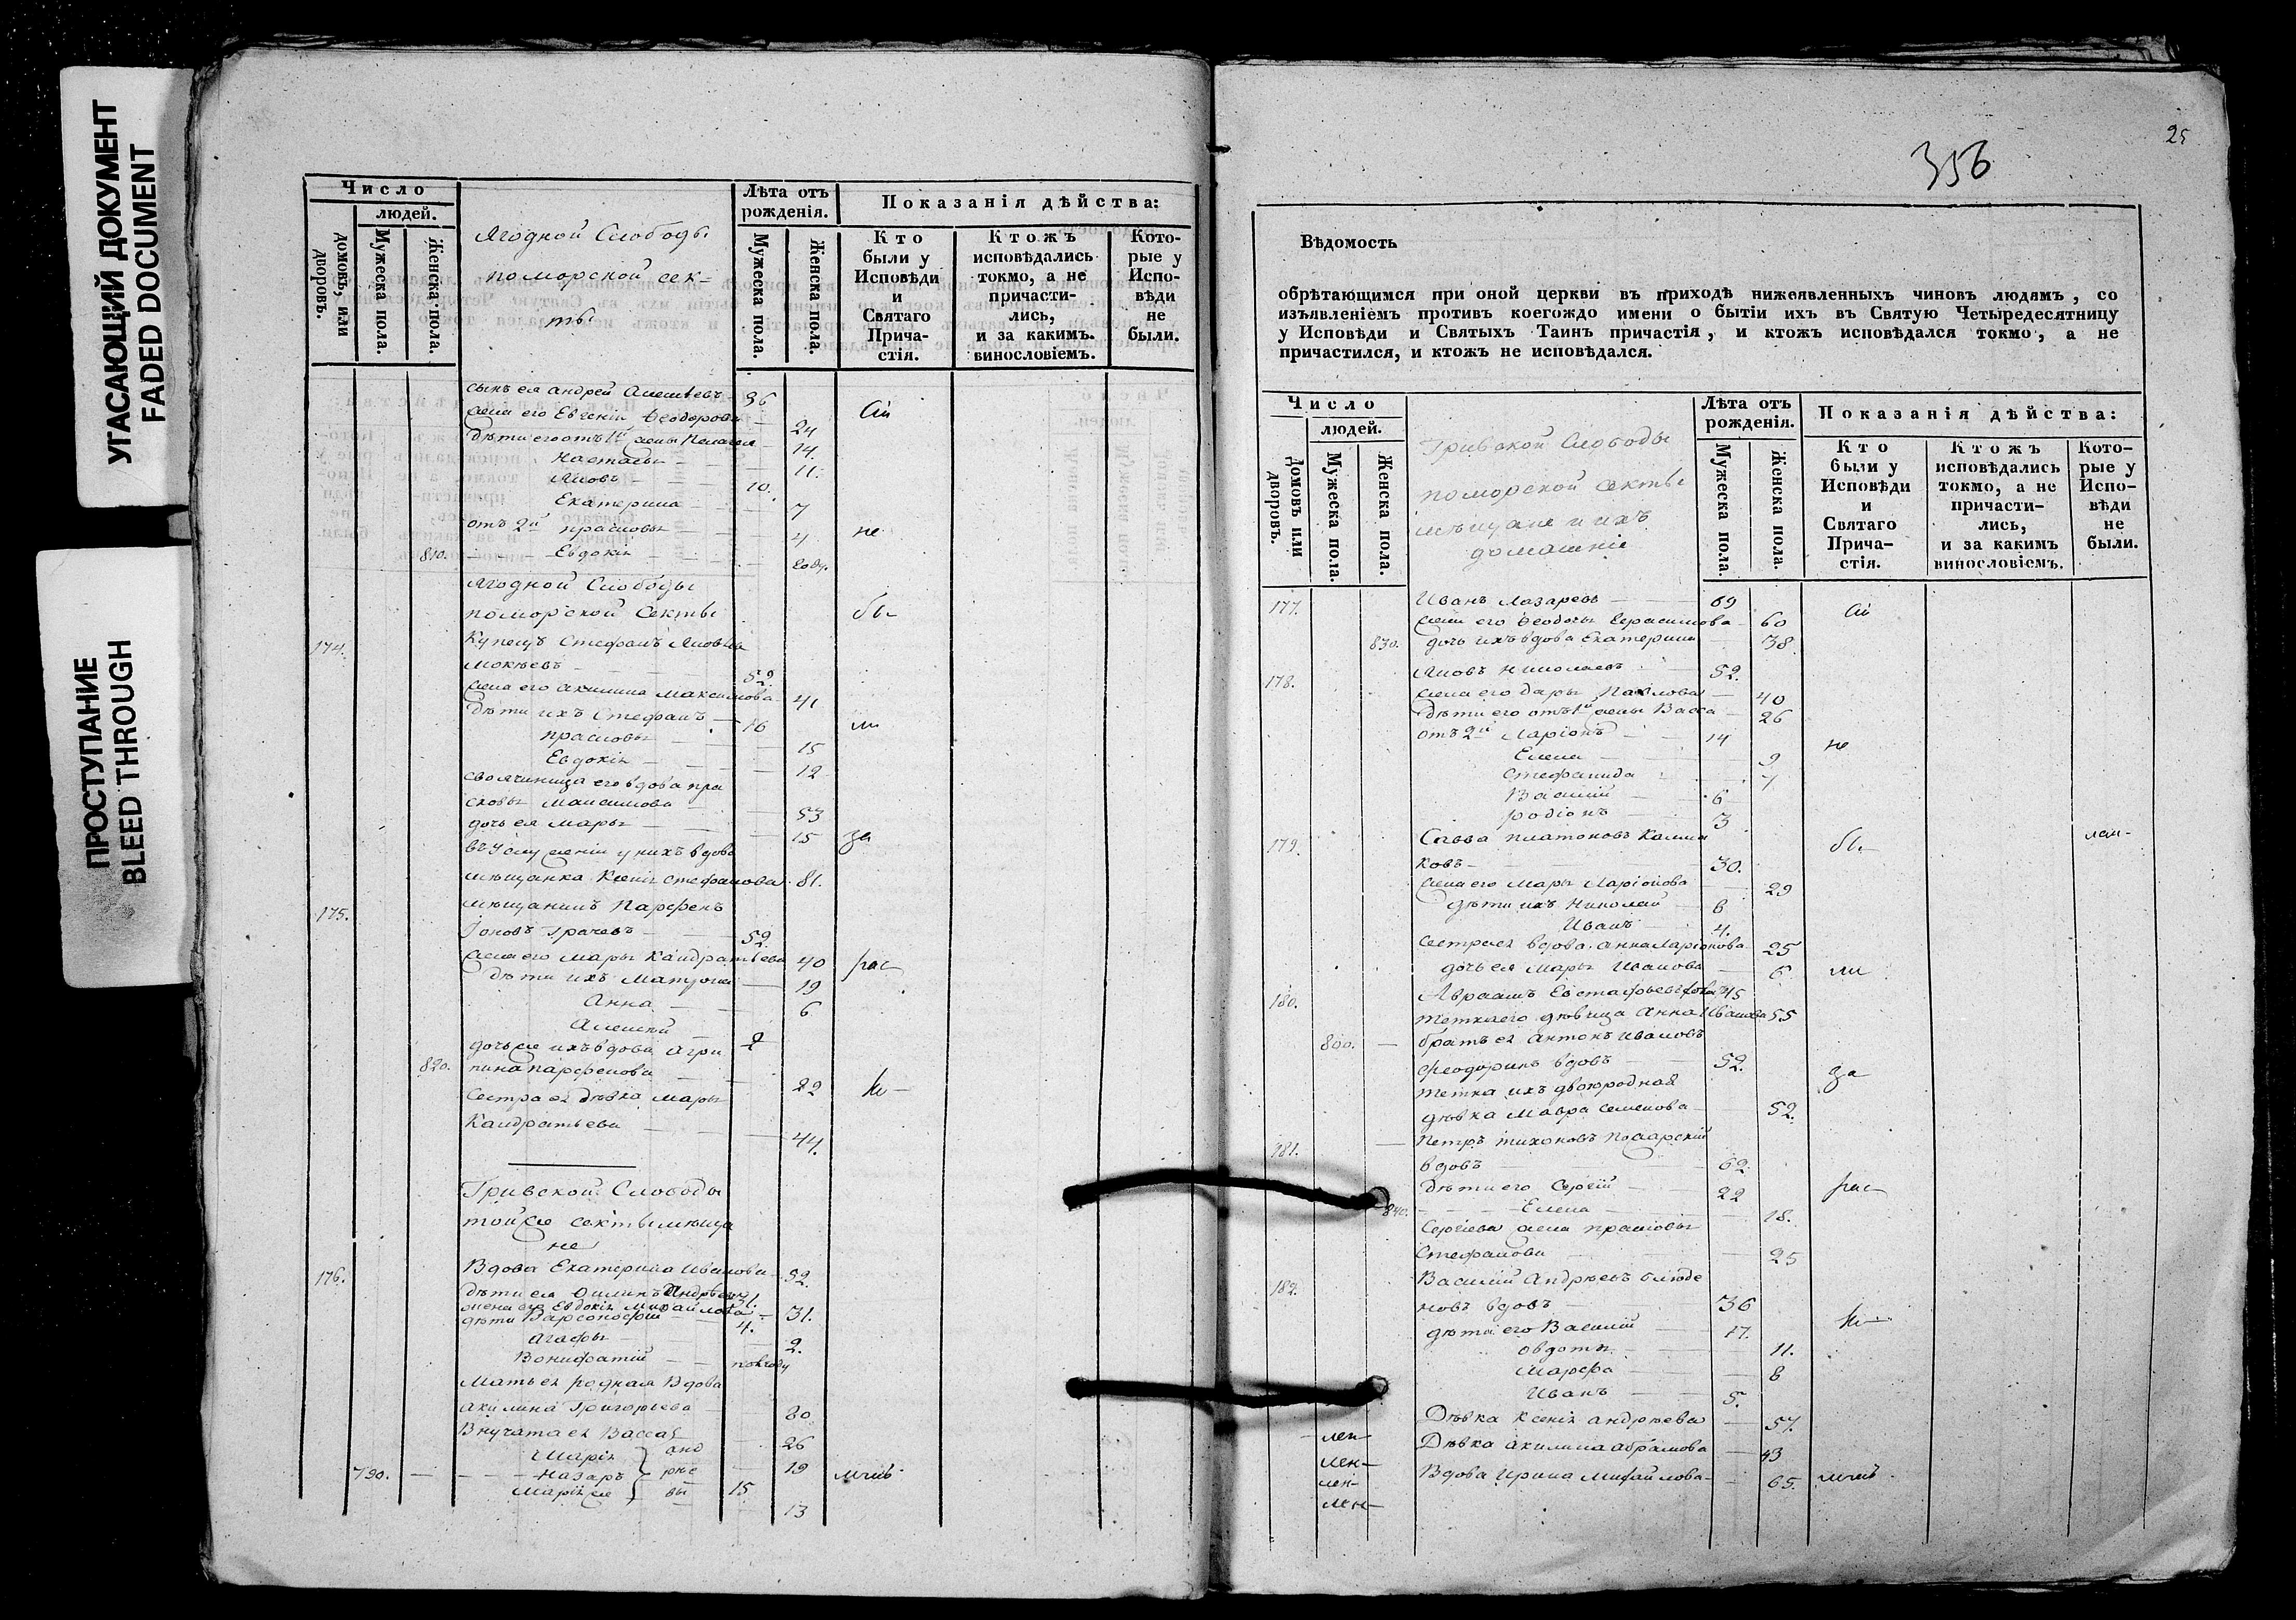 УГАСАЮЩИЙ ДОКУМЕНТ
FADED DOCUMENT
ПРОСТУПАНИЕ
BLEED THROUGH
Число
людей.
домовъ, или дворовъ.
Мужеска пола.
Женска пола.
Ягодной Слободы
поморской сек-
ты
Лѣта отъ рожденія.
Мужеска пола.
Женска пола.
Показанія дѣйства:
Кто были у Исповѣди и Святаго Прича-стія.
Ктожъ исповѣдались токмо, а не причасти-лись, и за какимъ. винословіемъ.
Кото-рые у Испо-вѣди не были.
сынъ ея Андрей Алексѣевъ 36
жена его Евгенія Ѳеодорова 24
дѣти его отъ 1й жены Пелагея 14.
Настасья 11.
Яковъ 10.
Екатерина 7
отъ 2й Прасковья 4 не
810. Евдокія году.
Ягодной Слободы
поморской Секты бы
174. Купецъ Стефанъ Яковлев
Мокѣевъ 52.
жена его Акилина Максимова 41
дѣти ихъ Стефанъ 16 ли
Прасковья 15
Евдокія 12
своячиница его вдова Пра
сковья Максимова 53
дочь ея Марья 15 за
въ услуженіи у нихъ вдова
мѣщанка Ксенія Стефанова 81.
175. мѣщанинъ Парфенъ
Іоновъ Грачевъ 52.
жена его Марья Кандратьева 40 рас
дѣти ихъ Матрона 19
Анна 6
Алексѣй 2
дочь же ихъ вдова Агри
820. пина Парфенова 22 ко
Сестра ея дѣвка Марья
Кандратьева 44.
Гривской Слободы
той же секты мѣща
не
176. Вдова Екатерина Иванова 52.
дѣти ея Филипъ Андрѣевъ 31.
жена его Евдокія Михайлова 31.
дѣти Варсонофій 4.
Агафья 2.
Вонифатій полгоду
Мать ея родная Вдова
Акилина Григорьева 80
Внучата ея Васса 26
Марія 19
790. Назаръ 15
Марія же 13
анд
рѣе
вы
25
356
Вѣдомость
обрѣтающимся при оной церкви въ приходѣ нижеявленныхъ чиновъ людямъ, со
изъявленіемъ противъ коегождо имени о бытіи ихъ въ Святую Четыредесятницу
у Исповѣди и Святыхъ Таинъ причастія, и ктожъ исповѣдался токмо, а не
причастился, и ктожъ не исповѣдался.
Число
людей.
Домовъ или дворовъ.
Мужеска пола.
Женска пола.
Гривской Слободы
поморской секты
мѣщане и ихъ
домашніе
Лѣта отъ рожденія.
Мужеска пола.
Женска пола.
Показанія дѣйства:
Кто были у Исповѣди и Святаго Прича-стія.
Ктожъ исповѣдались токмо, а не причасти-лись, и за какимъ винословіемъ.
Кото-рые у Испо-вѣди не были.
177. Иванъ Лазаревъ 69
жена его Ѳеодосья Герасимова 60
830. дочь ихъ вдова Екатерина 38
178. Яковъ Николаевъ 52.
жена его Дарья Павлова 40
дѣти его отъ 1й жены Васса 26
отъ 2й Ларіонъ 14 не
Елена 9
Стефанида 7
Василій 6
Родіонъ 3
179. Савва Платоновъ Калма бы
ковъ 30.
жена его Марья Ларіонова 29
дѣти ихъ Николай 6
Иванъ 4.
Сестра ея вдова Анна Ларіонова 25
дочь ея Марья Иванова 6 ли
180. Авраамъ Евстафьевъ 45
тетка его дѣвица Анна Иванова 55
800. братъ ея Антонъ Ивановъ
Феодоринъ вдовъ 52. за
тетка ихъ двоюродная
дѣвка Мавра Семенова 52.
181. Петръ Тихоновъ Посарскій
вдовъ 62.
дѣти его Сергій 22 рас
840. Елена 18.
Сергіева жена Прасковья
Стефанова 25
182. Василій Андрѣевъ Блюде
новъ вдовъ 36
дѣти его Василій 17. ко
Овдотья 11.
Марфа 8
Иванъ 5.
Дѣвка Ксенія Андрѣева 57.
Дѣвка Акилина Абрамова 43
Вдова Ирина Михайлова 65.